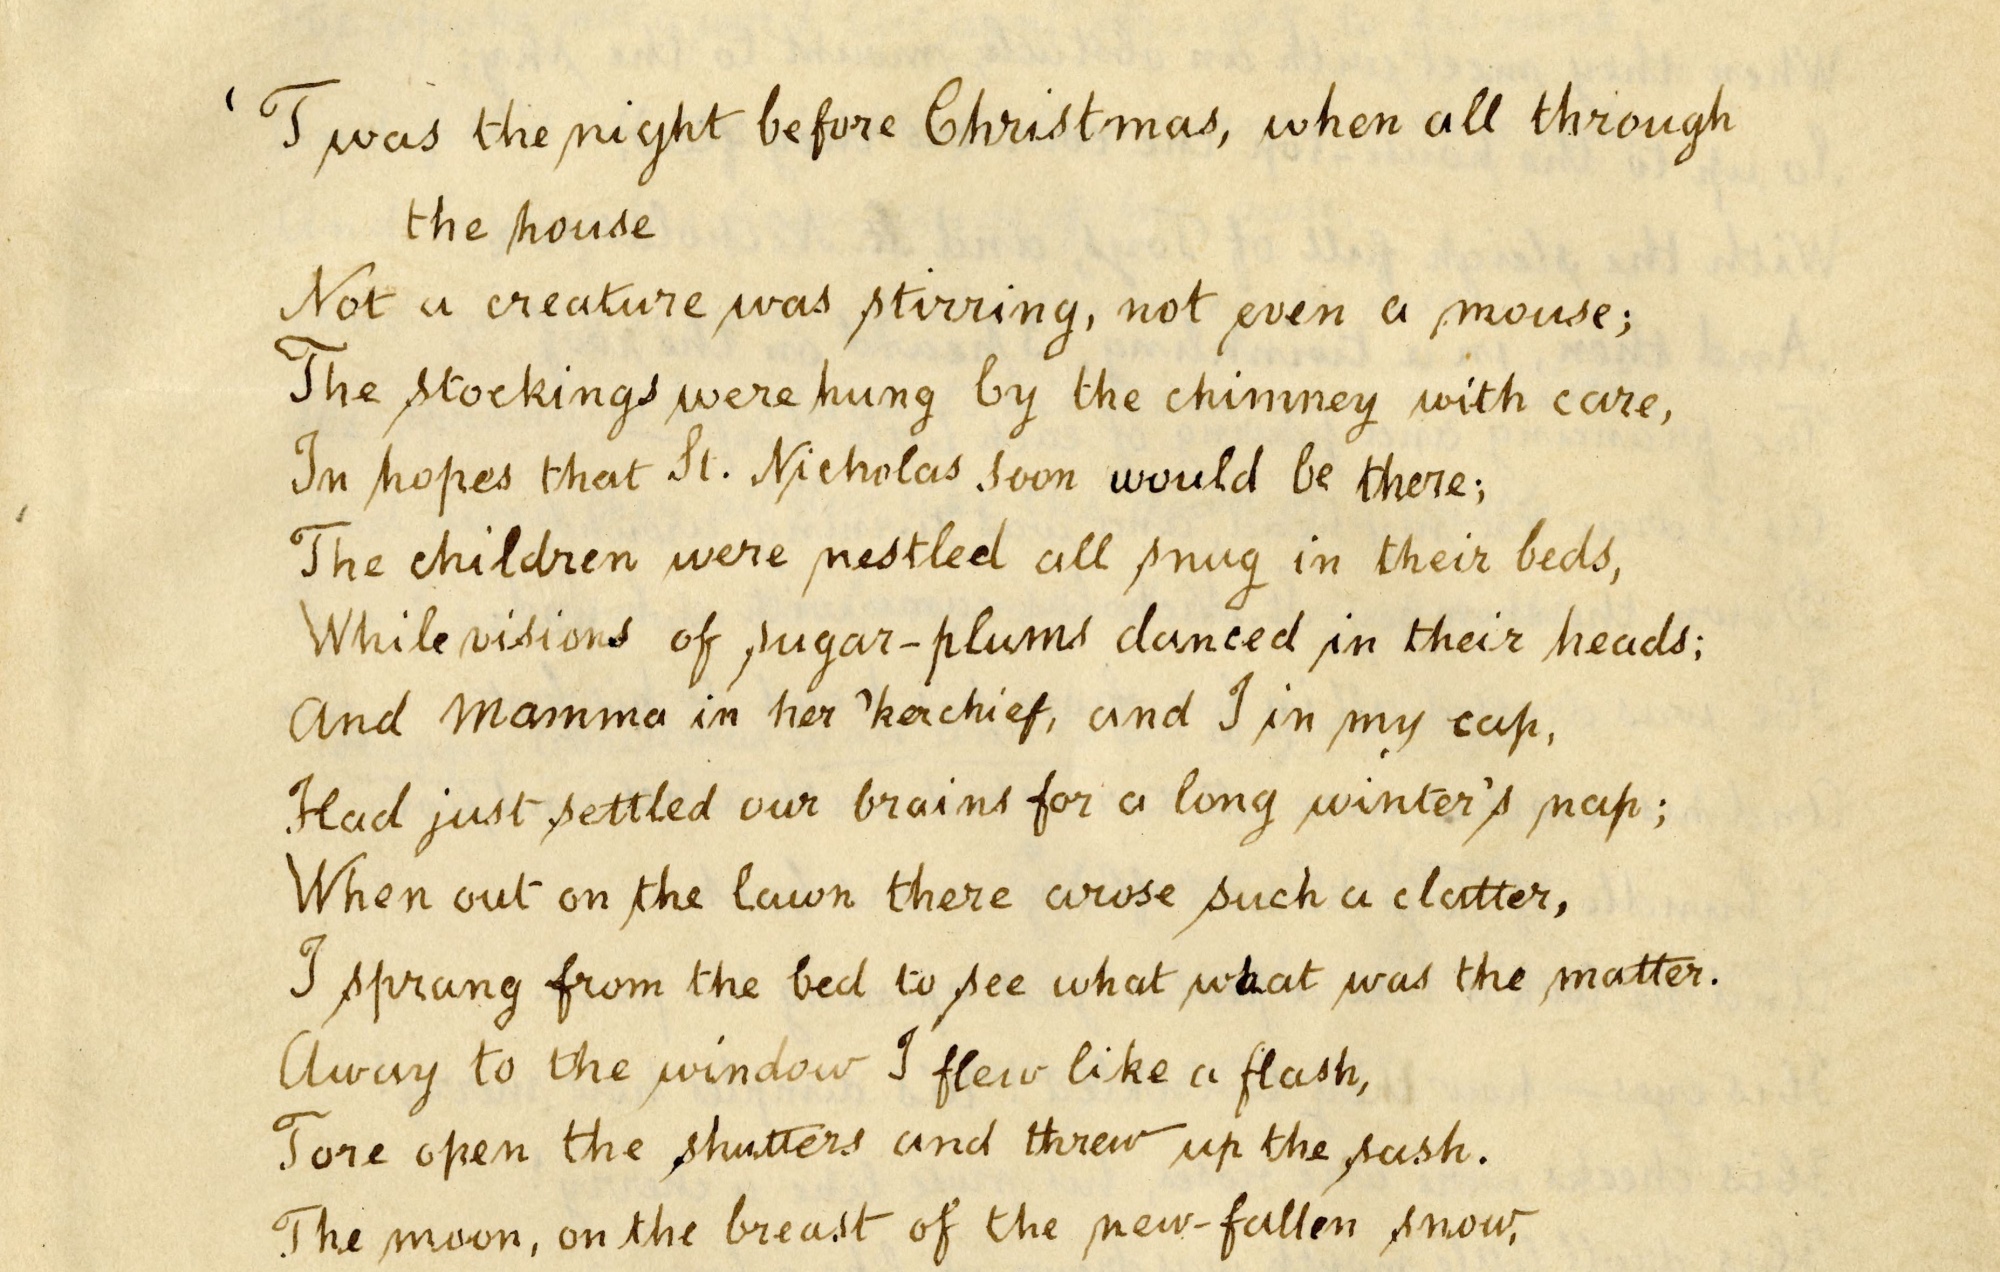 'Twas the night before Christmas, when all through
the house
Not a creature was stirring, not even a mouse;
The stockings were hung by the chimney with care,
In hopes that St. Nicholas soon would be there;
The children were nestled all snug in their beds,
While visions of sugar-plums danced in their heads;
And Mamma in her 'kerchief, and I in my cap,
Had just settled our brains for a long winter's nap;
When out on the lawn there arose such a clatter,
I sprang from the bed to see what what was the matter.
Away to the window I flew like a flash,
Tore open the shutters and threw up the sash.
The moon, on the breast of the new-fallen snow,